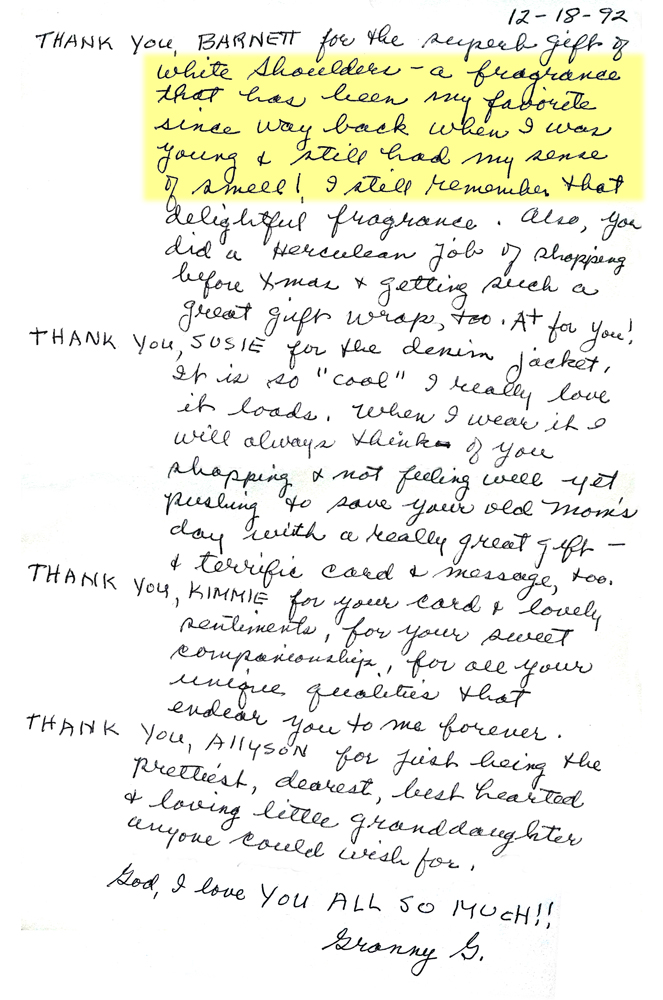 12-18-92
THANK YOU, BARNETT for the superb gift of
white shoulders - a fragrance
that has been my favorite
since way back when I was
young & still had my sense
of smell! I still remember that
delightful fragrance. Also, you
did a Herculean job of shopping
before Xmas & getting such a
great gift wrap, too. A+ for you!
THANK YOU, SUSIE for the denim jacket.
It is so "cool" I really love
it loads. When I wear it I
will always think of you
shopping & not feeling well yet
pushing to save your old Mom's
day with a really great gift -
& terrific card & message, too.
THANK YOU, KIMMIE for your card & lovely
sentiments, for your sweet
companionship, for all your
unique qualities that
endear you to me forever.
THANK YOU, ALLYSON for just being the
prettiest, dearest, best hearted
& loving little granddaughter
anyone could wish for.
God, I love YOU ALL SO MUCH!!
Granny G.